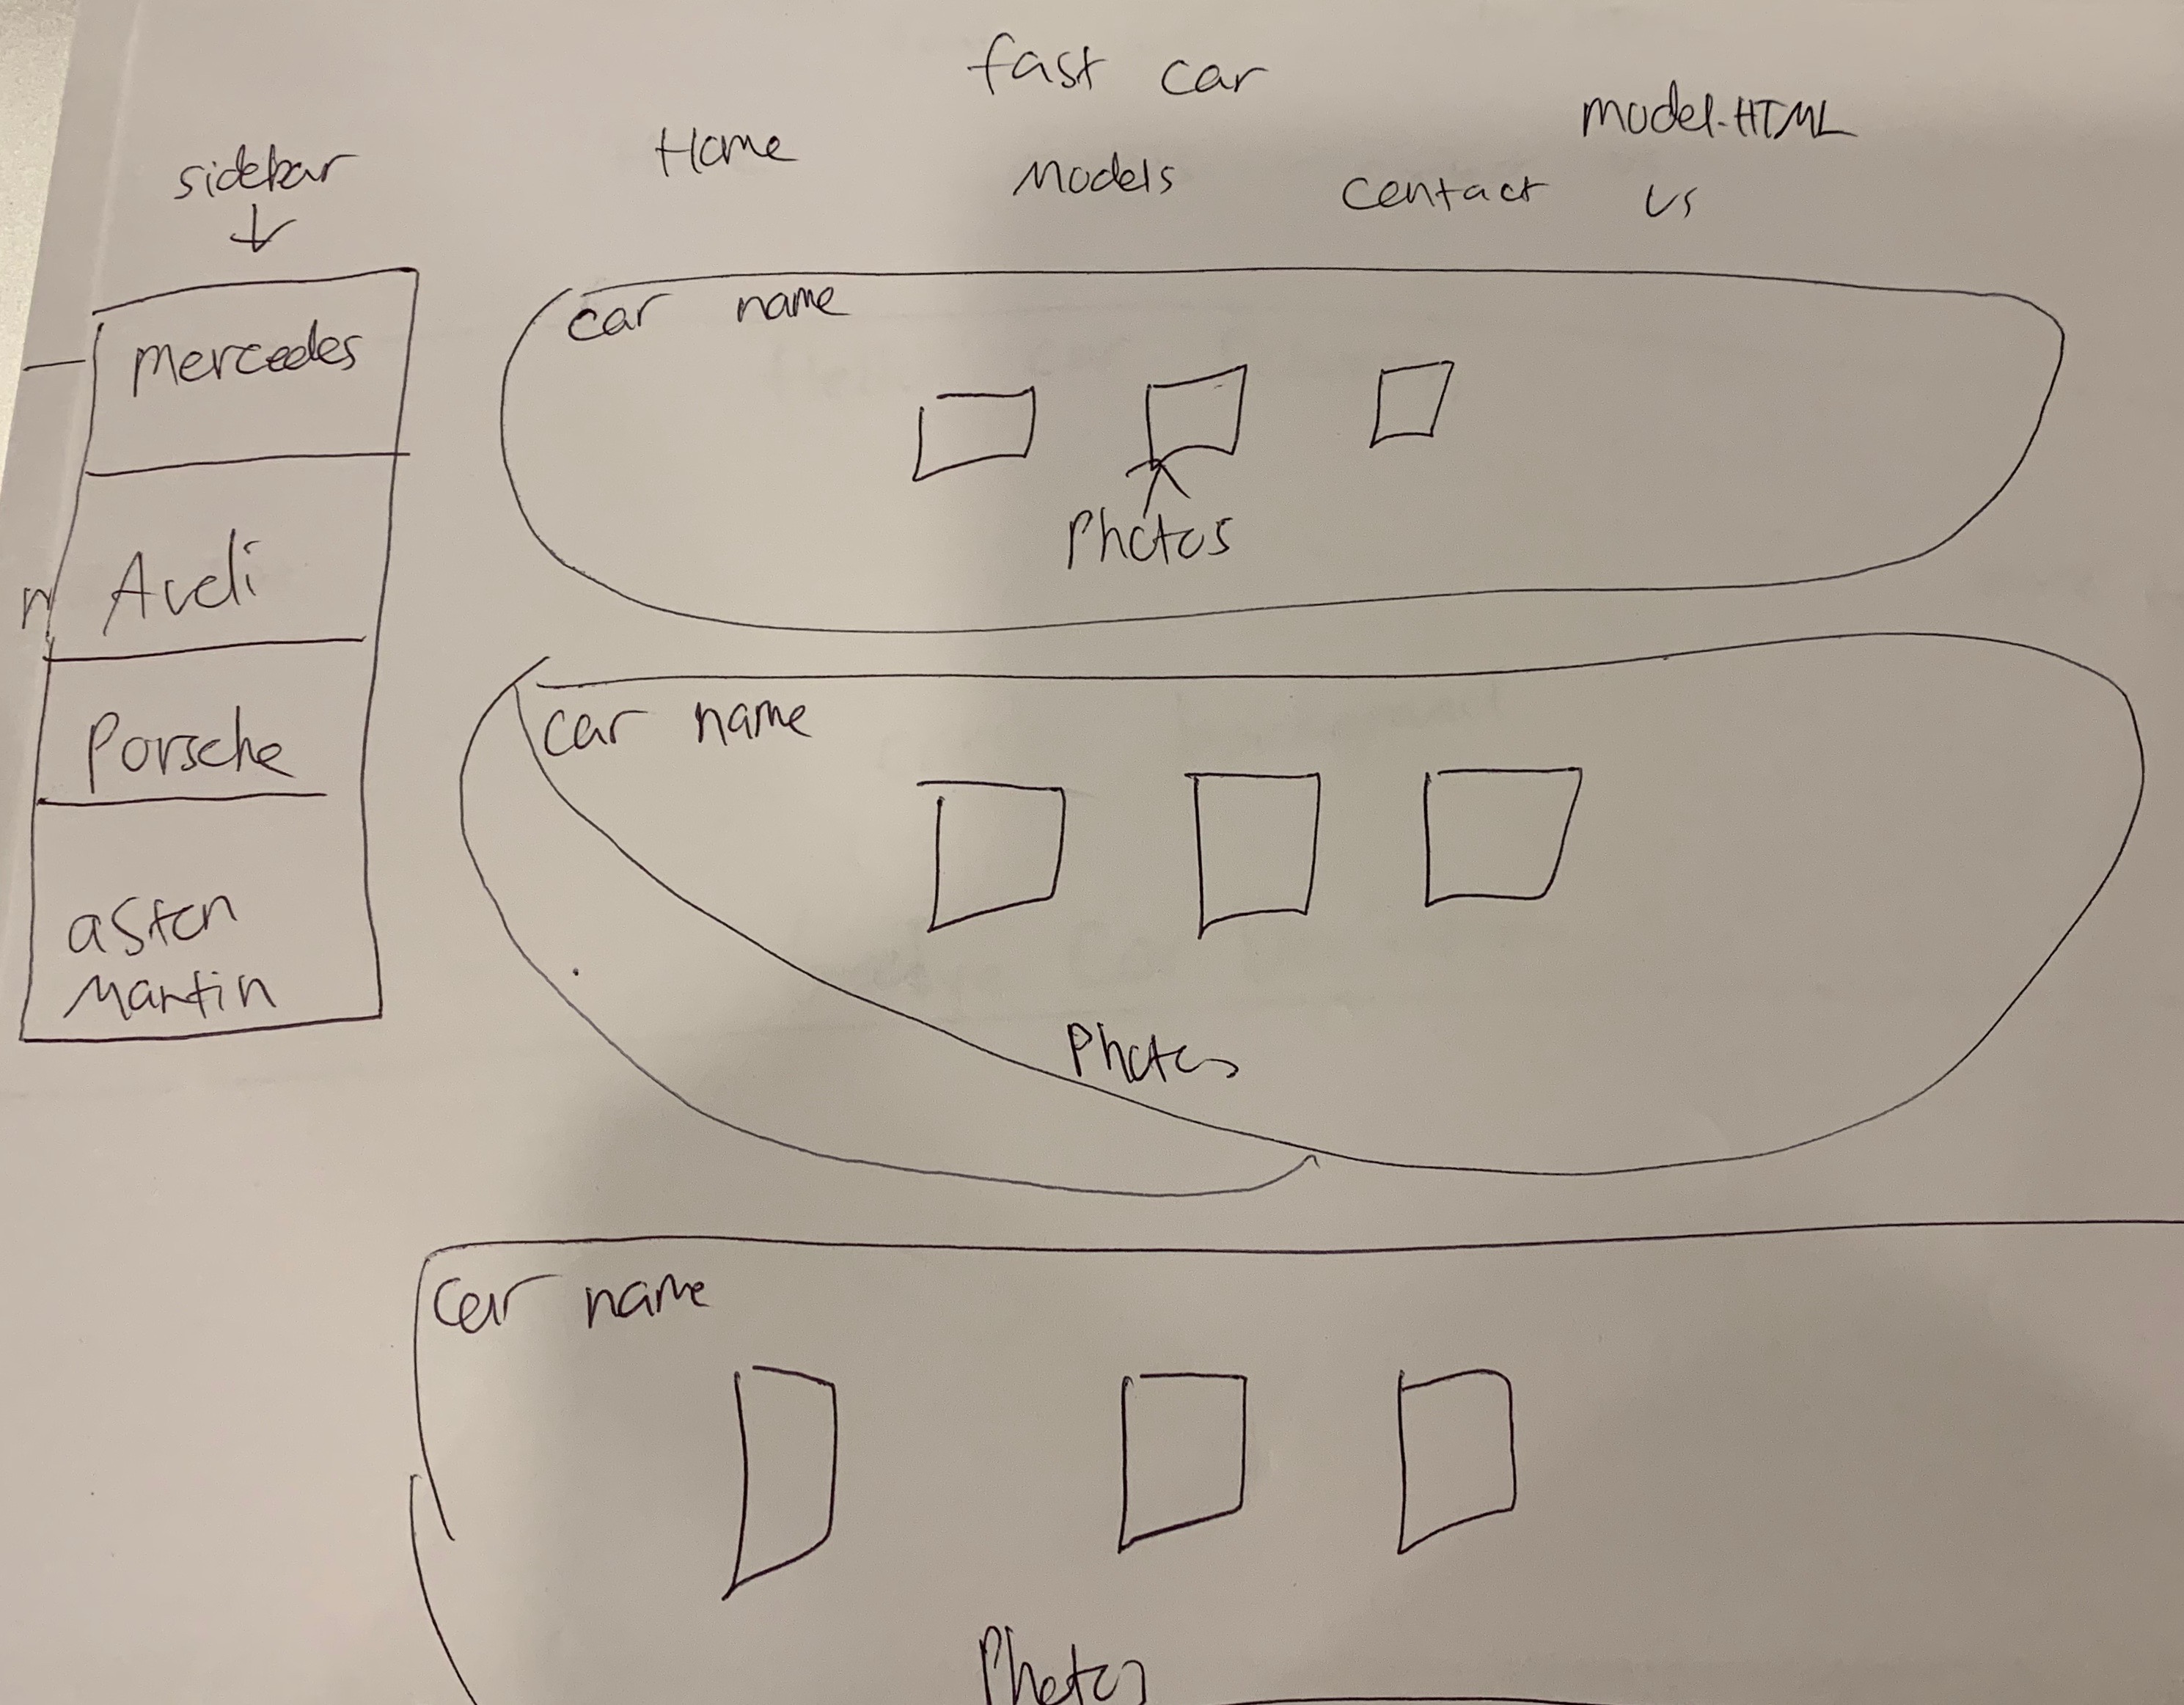 fast car
model.HTML
Home
Models
Contact us
sidebar
Mercedes
Audi
Porsche
aston
Martin
car name
Photos
car name
Photos
Car name
Photos